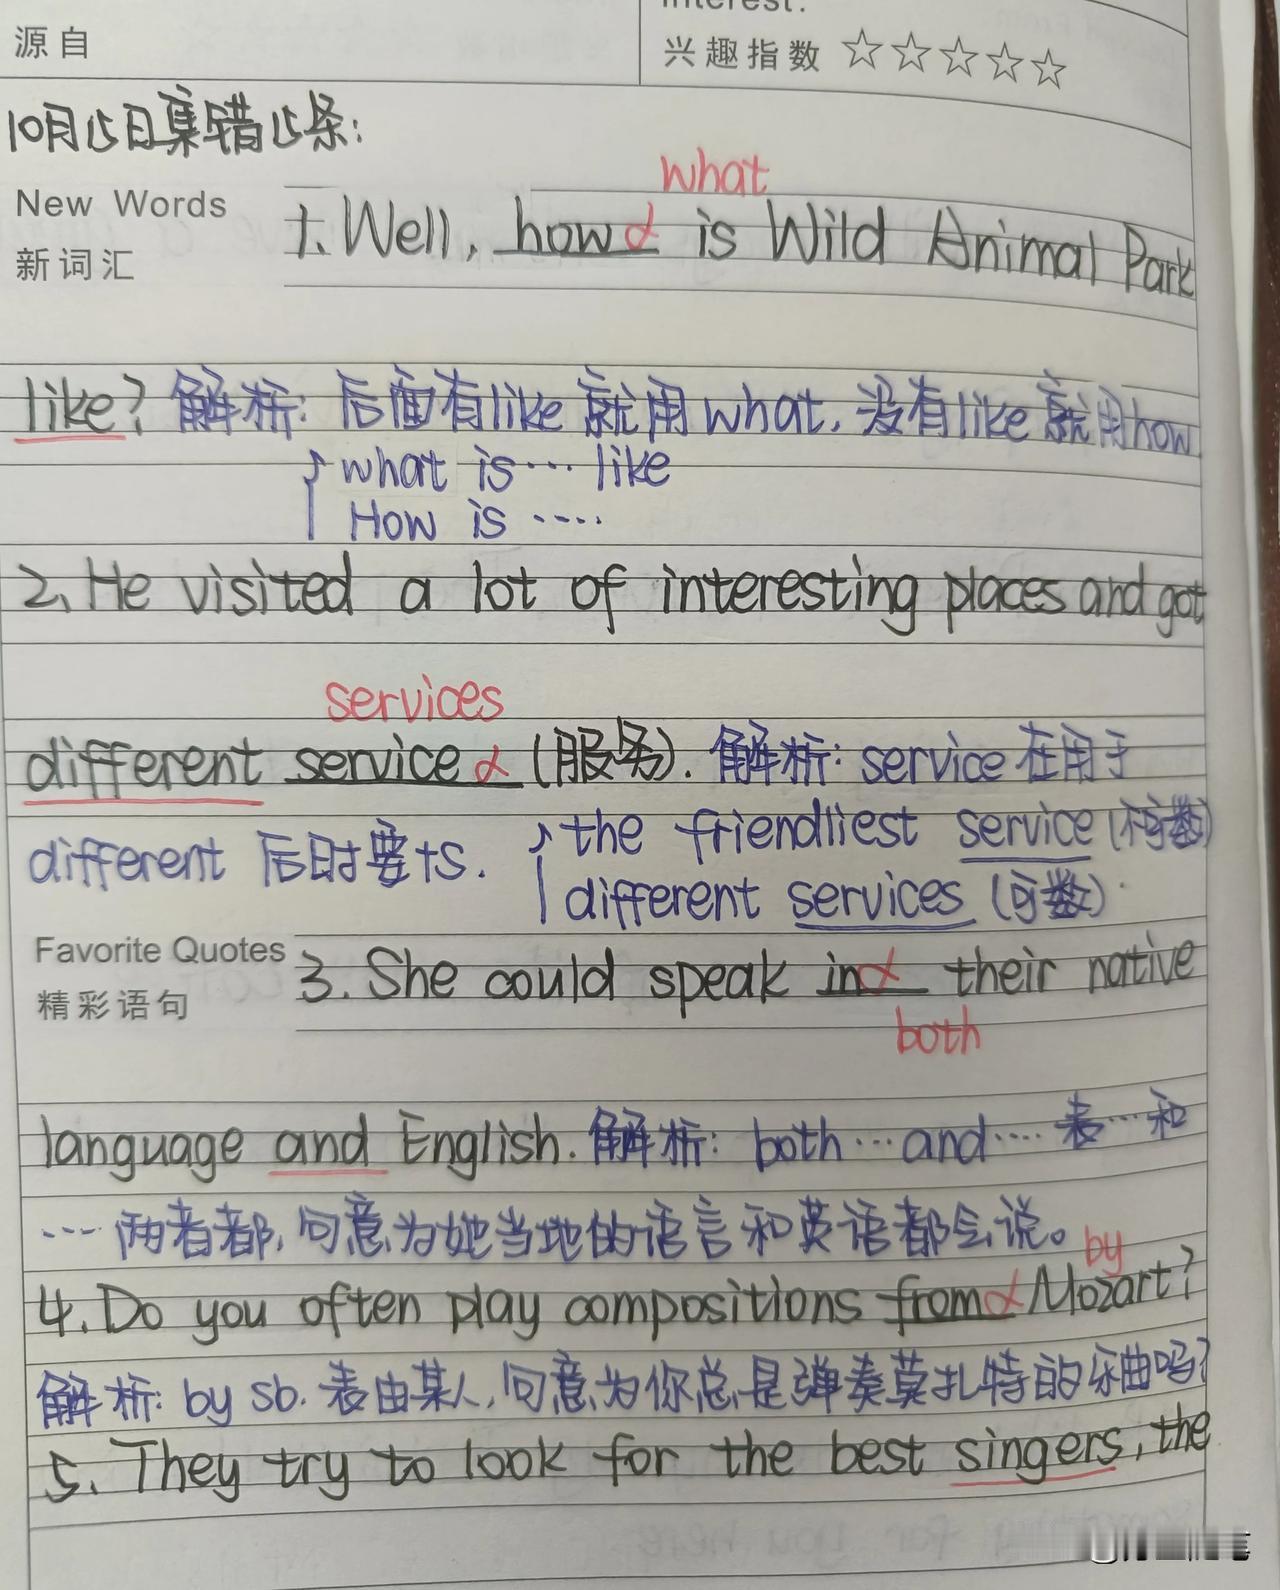 源自
兴趣指数 ☆☆☆☆☆
10月15日集错15条:
what
New Words
新词汇
1. Well, how is Wild Animal Park
like? 解析: 后面有like就用what, 没有like就用how
what is … like
How is ….
2. He visited a lot of interesting places and got
services
different service (服务). 解析: service在用于
different 后时要+s.
the friendliest service (不可数)
different services (可数).
Favorite Quotes
精彩语句
3. She could speak in their native
both
language and English. 解析: both … and …. 表 … 和
… 两者都, 句意为她当地的语言和英语都会说。
by
4. Do you often play compositions from Mozart?
解析: by sb. 表由某人, 句意为你总是弹奏莫扎特的乐曲吗?
5. They try to look for the best singers, the